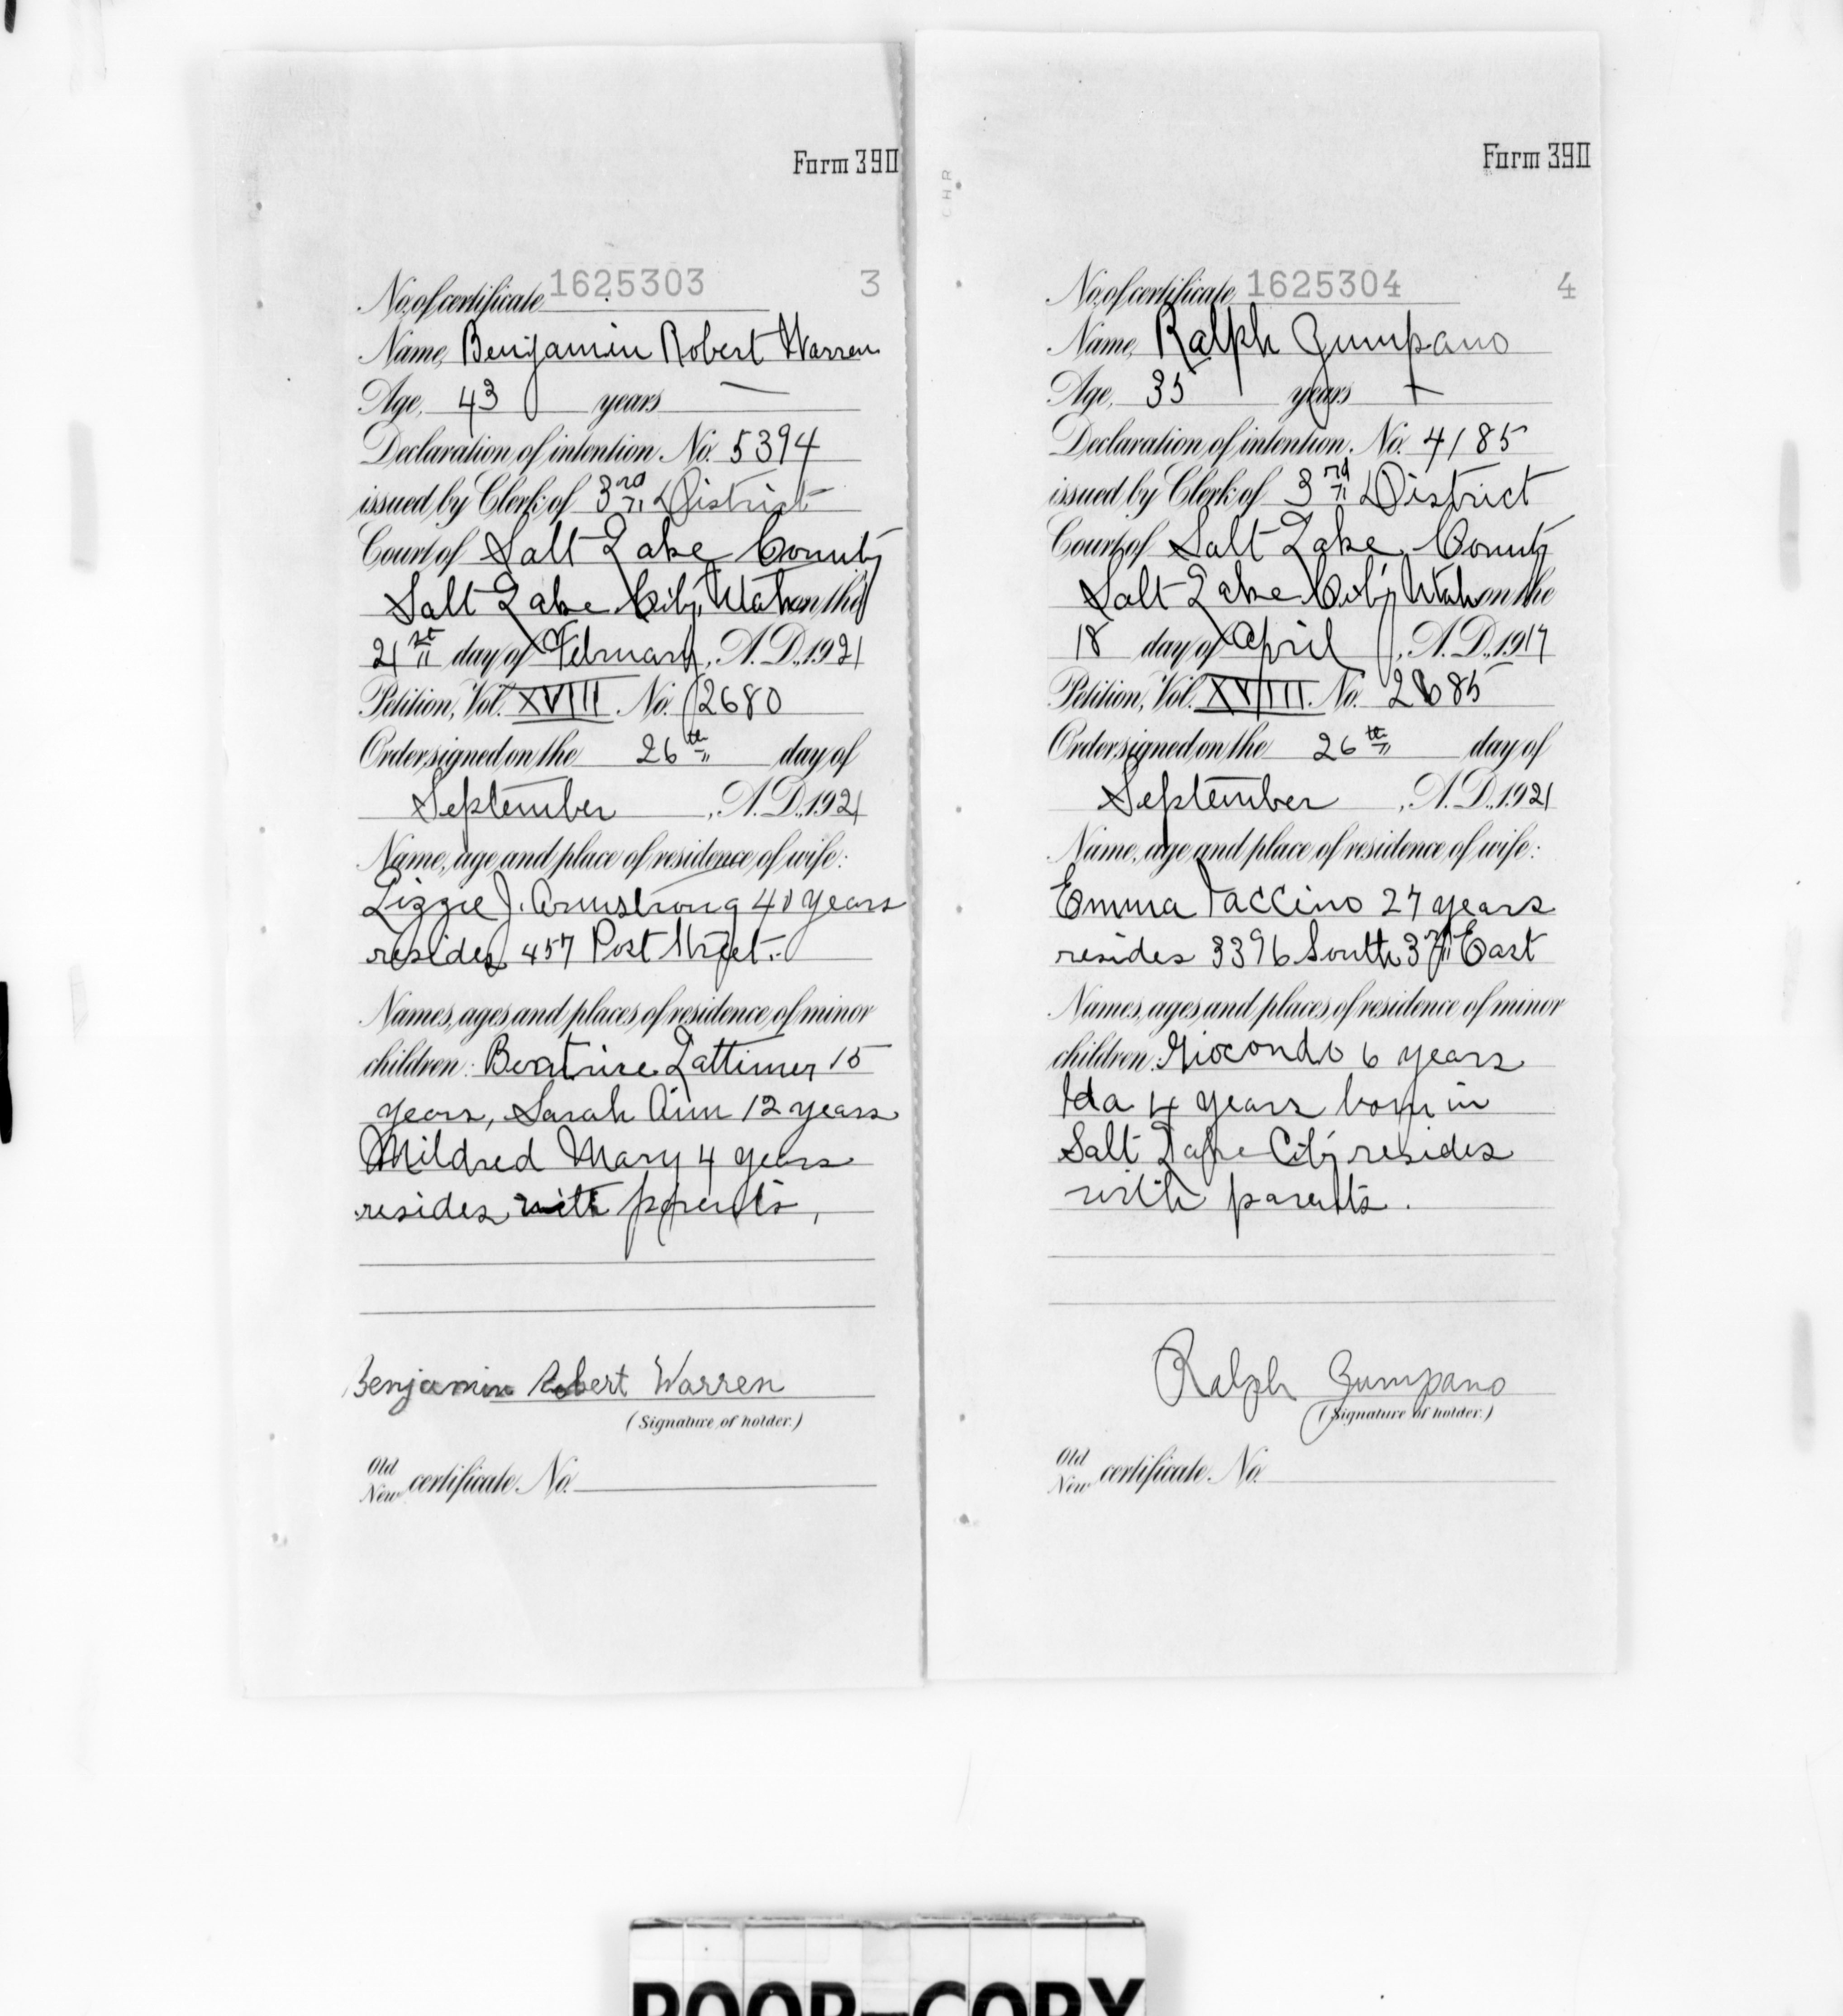 Form 390
No. of certificate 1625303 3
Name, Benjamin Robert Warren
Age, 43 years —
Declaration of intention, No. 5394
issued by Clerk of 3rd District
Court of Salt Lake County
Salt Lake City, Utah on the
21st day of February, A.D. 1921
Petition, Vol. XVIII No. 2680
Order signed on the 26th day of
September, A.D. 1921
Name, age and place of residence of wife:
Lizzie J. Armstrong years
resides 457 Post Street.
Names, ages and places of residence of minor
children: Beatrice Lattimer 15
years, Sarah Ann 12 years
Mildred Mary 4 years
resides with parents,
Benjamin Robert Warren
(Signature of holder.)
Old
New certificate No.
Form 390
CHR
No. of certificate 1625304 4
Name, Ralph Gumpano
Age, 35 years
Declaration of intention, No. 4185
issued by Clerk of 3rd District
Court of Salt Lake County
Salt Lake City Utah on the
18 day of April, A.D. 1917
Petition, Vol. XVIII. No. 2685
Order signed on the 26th day of
September, A.D. 1921
Name, age and place of residence of wife:
Emma Iaccino 27 years
resides 3396 South 3rd East
Names, ages and places of residence of minor
children: Giocondo 6 years
Ida 4 years born in
Salt Lake City resides
with parents.
Ralph Gumpano
(Signature of holder.)
Old
New certificate No.
POOR COPY